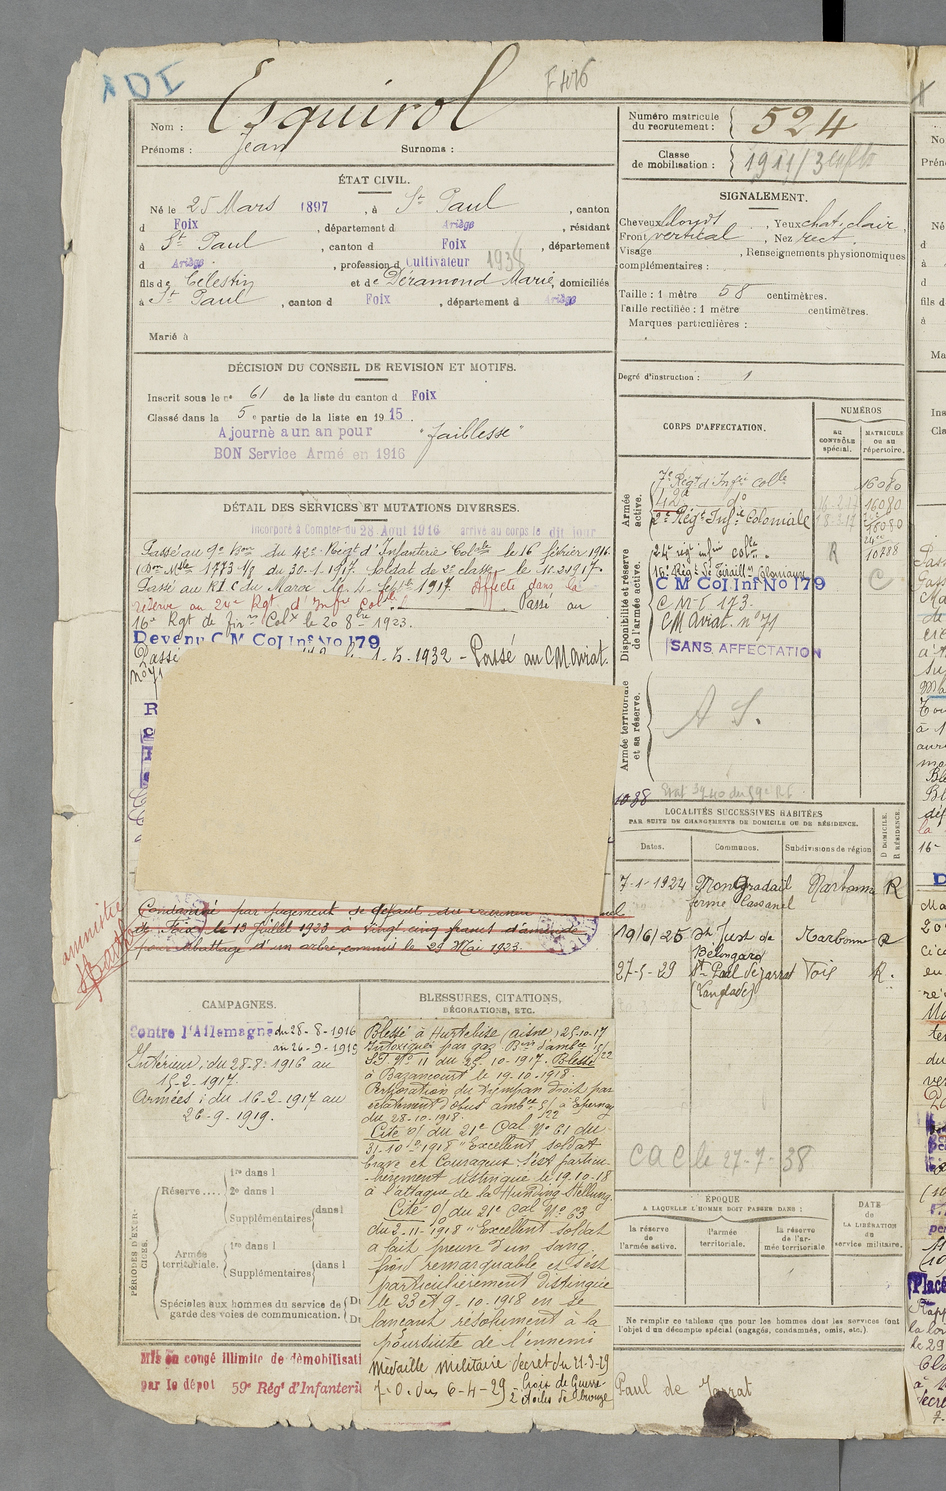 ADI
F 416
Nom : Esquirol
Prénoms : Jean Surnoms :
Numéro matricule du recrutement : 524
Classe de mobilisation : 1911/3
ÉTAT CIVIL.
Né le 25 Mars 1897, à St Paul, canton
d Foix, département d Ariège, résidant
à St Paul, canton d Foix, département
d Ariège, profession d Cultivateur 1938
fils de Célestin et de Déramond Marie, domiciliés
à St Paul, canton d Foix, département d Ariège
Marié à
SIGNALEMENT.
Cheveux blonds, Yeux chat. clair,
Front vertical, Nez rect.
Visage , Renseignements physionomiques
complémentaires :
Taille : 1 mètre 58 centimètres.
Taille rectifiée : 1 mètre centimètres.
Marques particulières :
Degré d'instruction : 1
DÉCISION DU CONSEIL DE REVISION ET MOTIFS.
Inscrit sous le n° 61 de la liste du canton d Foix
Classé dans la 5e partie de la liste en 1915.
Ajourné a un an pour "faiblesse"
BON Service Armé en 1916
DÉTAIL DES SERVICES ET MUTATIONS DIVERSES.
Incorporé à Compter du 28 Aout 1916 arrivé au corps le dit jour
Passé au 9e Bon du 42e Régt d'Infanterie Colle le 16 février 1916
(Don Mlle 1773 1/8 du 30-1-1917. Soldat de 2e classe le 10.3.1917.
Passé au R I C du Maroc le 4 Septbre 1917. Affecté dans la
réserve au 24e Rgt d'Infie Colle. Passé au
16e Rgt de Colx le 20 8bre 1923.
Devenu C M Col Inf No 179
Passé le 1-5-1932 - Passé au CM Aviat.
No 71
CORPS D'AFFECTATION.
NUMÉROS
AU CONTRÔLE spécial.
MATRICULE OU AU répertoire.
Armée active.
7e Régt d'Infie Colle 16080
42e do 16080
2e Régt Infie Coloniale 16080
Disponibilité et réserve de l'armée active.
24e régt infie colle R 10788
16e Rég. de Tiraill. Coloniaux C
C M Col Inf No 179
C M I 173.
CM Aviat. n° 71
SANS AFFECTATION
Armée territoriale et sa réserve.
A S.
LOCALITÉS SUCCESSIVES HABITÉES
PAR SUITE DE CHANGEMENTS DE DOMICILE OU DE RÉSIDENCE.
Dates. Communes. Subdivisions de région
D DOMICILE. R RÉSIDENCE
7-1-1924 Mongradail ferme Cassanel Narbonne R
19/6/25 St Just de Bélongard Narbonne R
27-5-29 St Paul de Jarrat (Langlade) Foix R.
CAC le 27-7-38
Condamné par jugement de défaut du
de Foix le 13 Juillet 1923 à vingt cinq francs d'amende
pour abattage d'un arbre commis le 29 Mai 1923.
amnistié
CAMPAGNES.
Contre l'Allemagne du 28-8-1916
au 26-9-1919
Intérieur : du 28-8-1916 au
15-2-1917.
Armées : du 16-2-1917 au
26-9-1919.
BLESSURES, CITATIONS,
DÉCORATIONS, ETC.
Blessé à Hurtebise (aisne) 25-10-17
Intoxiqué par gaz Bon d'ambce 5/22
S.F. No 11 du 25-10-1917. Blessé
à Bazancourt le 19-10-1918.
Perforation du tympan droit par
éclatement d'obus ambce 5/22 à Epernay
du 28-10-1918.
Cité O/ du 21e Cal No 61 du
31-10-1918 "Excellent soldat
brave et Courageux s'est particu-
lièrement distingué le 19-10-18
à l'attaque de la Hunding Stellung.
Cité O/ du 21e Cal No 63
du 2-11-1918 "Excellent soldat
a fait preuve d'un sang
froid remarquable et s'est
particulièrement distingué
le 23 et 9-10-1918 en se
lançant résolument à la
poursuite de l'ennemi
Médaille militaire décret du 21-3-29
J.O. du 6-4-29 - Croix de Guerre
2 étoiles de bronze
PÉRIODES D'EXERCICES.
Réserve ....
1re dans l
2e dans l
Supplémentaires dans l
Armée territoriale.
1re dans l
Supplémentaires dans l
Spéciales aux hommes du service de
garde des voies de communication.
ÉPOQUE
A LAQUELLE L'HOMME DOIT PASSER DANS :
la réserve de l'armée active.
l'armée territoriale.
la réserve de l'armée territoriale
DATE de LA LIBÉRATION du service militaire.
Ne remplir ce tableau que pour les hommes dont les services font
l'objet d'un décompte spécial (engagés, condamnés, omis, etc.)
Mis en congé illimité de démobilisati
par le dépot 59e Régt d'Infanterie
Paul de Jarrat